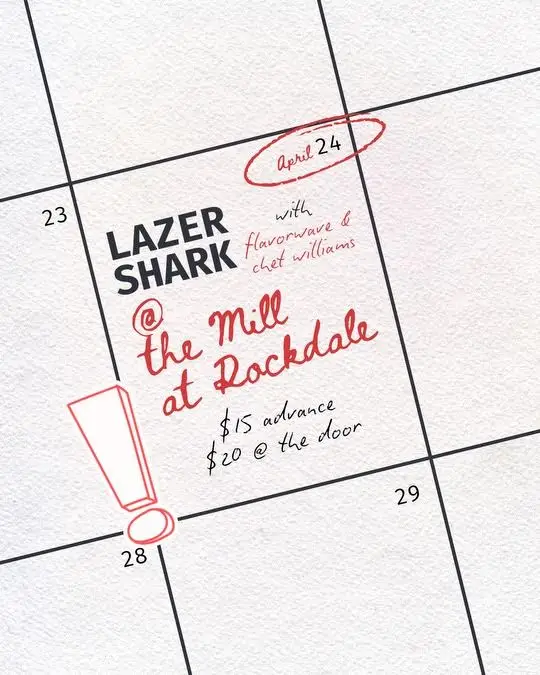 April 24
23
LAZER
SHARK
with
flavorwave &
chet williams
@
the Mill
at Rockdale
$15 advance
$20 @ the door
28
29